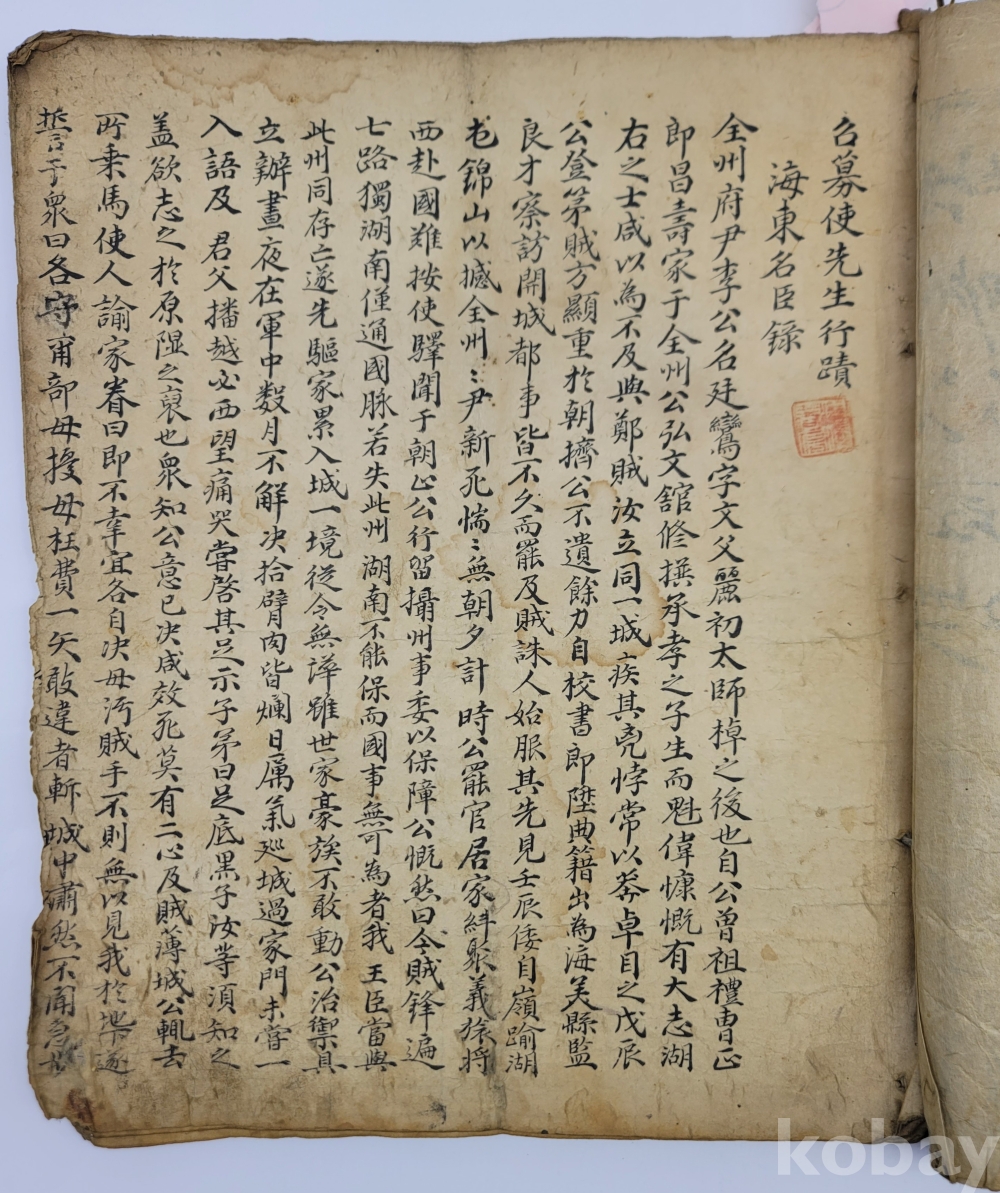 召募使先生行蹟
海東名臣錄
全州府尹李公名廷鸞字文父麗初太師棹之後也自公曾祖禮曹正
郎昌壽家于全州公弘文館修撰承孝之子生而魁偉慷慨有大志湖
右之士咸以為不及與鄭賊汝立同一城疾其兇悖常以莽卓目之戊辰
公登第賊方顯重於朝擠公不遺餘力自校書郎陞典籍出為海美縣監
良才察訪開城都事皆不久而罷及賊誅人始服其先見壬辰倭自嶺踰湖
屯錦山以撼全州〻尹新死惴〻無朝夕計時公罷官居家糾聚義旅將
西赴國難按使驛聞于朝止公行留攝州事委以保障公慨然曰今賊鋒遍
七路獨湖南僅通國脉若失此州湖南不能保而國事無可為者我王臣當與
此州同存亡遂先驅家累入城一境從令無譁雖世家豪族不敢動公治禦具
立辦晝夜在軍中数月不解決拾臂肉皆爛日厲氣巡城過家門未嘗一
入語及君父播越必西望痛哭嘗啓其足示子弟曰足底黑子汝等須知之
盖欲志之於原隰之裒也衆知公意已决咸效死莫有二心及賊薄城公輒去
所乘馬使人諭家眷曰即不幸宜各自决毋汚賊手不則無以見我於地下遂
誓于衆曰各守甭部毋擾毋枉費一矢敢違者斬城中肅然不聞急
kobay